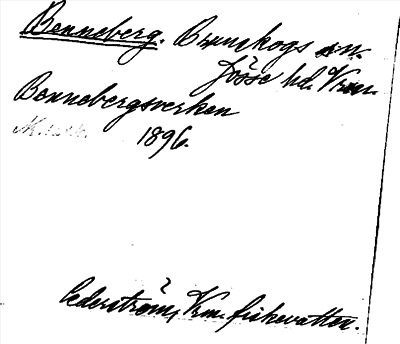 Benneberg. Brunskogs sn.
Jösse hd. Vrm.
Bennebergsverken
1896.
Cederström, Vrm. fiskevatten.